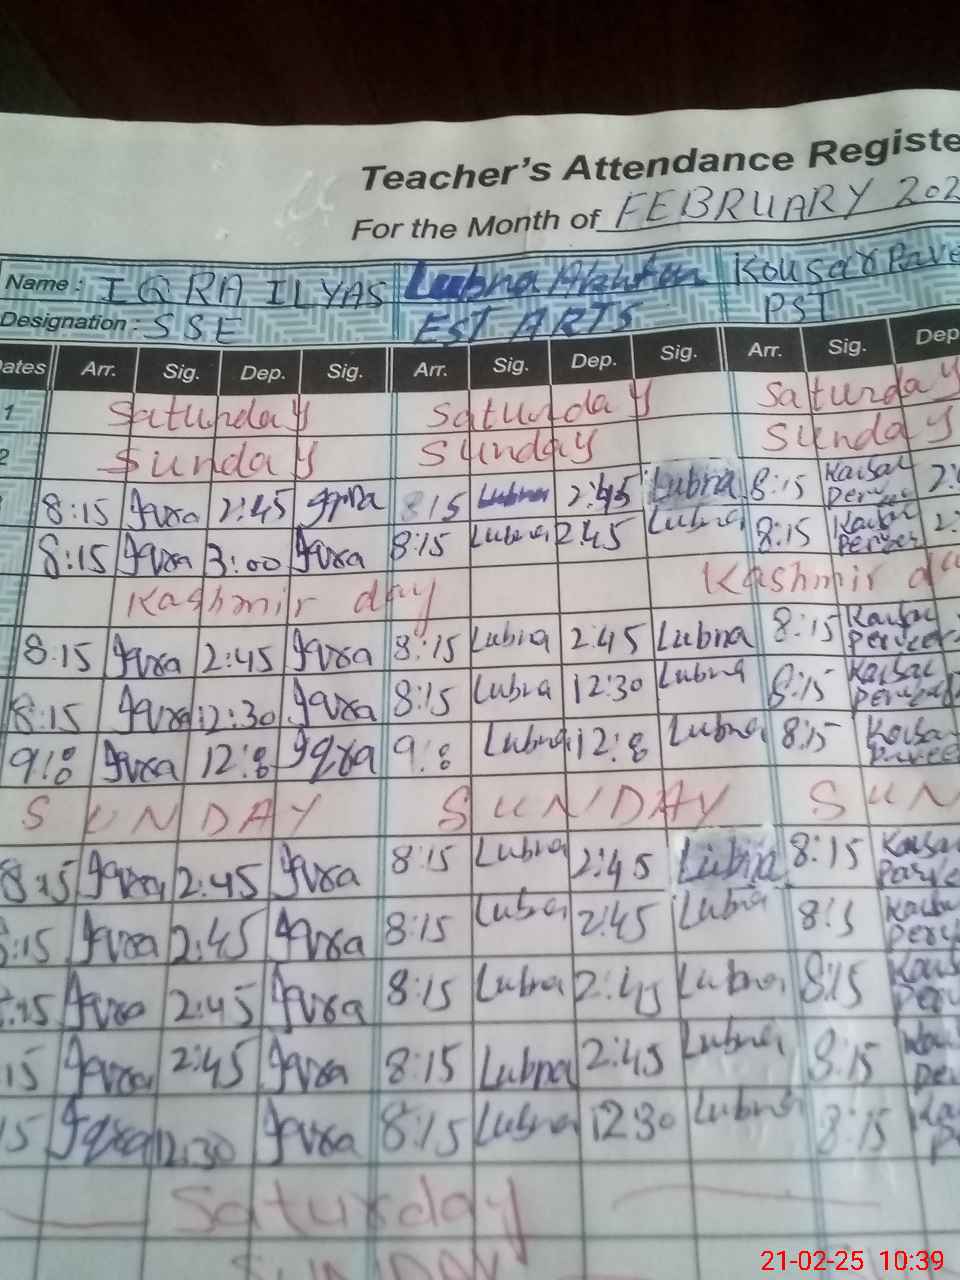 Teacher's Attendance Registe
For the Month of FEBRUARY 202
Name: IQRA ILYAS Lubna Kousar Parve
Designation: SSE EST ARTS PST
Dates Arr. Sig. Dep. Sig. Arr. Sig. Dep. Sig. Arr. Sig. Dep
1 Saturday Saturday Saturday
2 Sunday Sunday Sunday
8:15 Iqra 2:45 Iqra 8:15 Lubna 2:45 Lubna 8:15 Kousar Perveen 2:
8:15 Iqra 3:00 Iqra 8:15 Lubna 2:45 Lubna 8:15 Kousar Perveen 2:
Kashmir day Kashmir da
8:15 Iqra 2:45 Iqra 8:15 Lubna 2:45 Lubna 8:15 Kousar Perveen
8:15 Iqra 12:30 Iqra 8:15 Lubna 12:30 Lubna 8:15 Kousar
Iqra Iqra Lubna Lubna 8:15 Kousa
SUNDAY SUNDAY SUN
8:15 Iqra 2:45 Iqra 8:15 Lubna 2:45 Lubna 8:15 Kousa
:15 Iqra 2:45 Iqra 8:15 Lubna 2:45 Lubna 8:15
:15 Iqra 2:45 Iqra 8:15 Lubna 2:45 Lubna 8:15 Kous
15 Iqra 2:45 Iqra 8:15 Lubna 2:45 Lubna 8:15
15 Iqra 12:30 Iqra 8:15 Lubna 12:30 Lubna 8:15
Saturday
SUNDAY
21-02-25 10:39